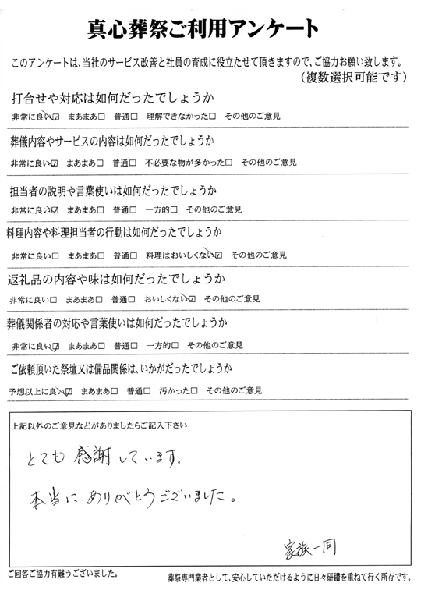 真心葬祭ご利用アンケート
このアンケートは、当社のサービス改善と社員の育成に役立たせて頂きますので、ご協力お願い致します。
(複数選択可能です)
打合せや対応は如何だったでしょうか
非常に良い☑ まあまあ□ 普通□ 理解できなかった□ その他のご意見
葬儀内容やサービスの内容は如何だったでしょうか
非常に良い☑ まあまあ□ 普通□ 不必要な物が多かった□ その他のご意見
担当者の説明や言葉使いは如何だったでしょうか
非常に良い☑ まあまあ□ 普通□ 一方的□ その他のご意見
料理内容や料理担当者の行動は如何だったでしょうか
非常に良い□ まあまあ□ 普通□ 料理はおいしくない☑ その他のご意見
返礼品の内容や味は如何だったでしょうか
非常に良い□ まあまあ□ 普通□ おいしくない☑ その他のご意見
葬儀関係者の対応や言葉使いは如何だったでしょうか
非常に良い☑ まあまあ□ 普通□ 一方的□ その他のご意見
ご依頼頂いた祭壇又は備品関係は、いかがだったでしょうか
予想以上に良い☑ まあまあ□ 普通□ 汚かった□ その他のご意見
上記以外のご意見などがありましたらご記入下さい
とても感謝しています。
本当にありがとうございました。
家族一同
ご回答ご協力有難うございました。
葬祭専門業者として、安心していただけるように日々研鑽を重ねて行く所存です。